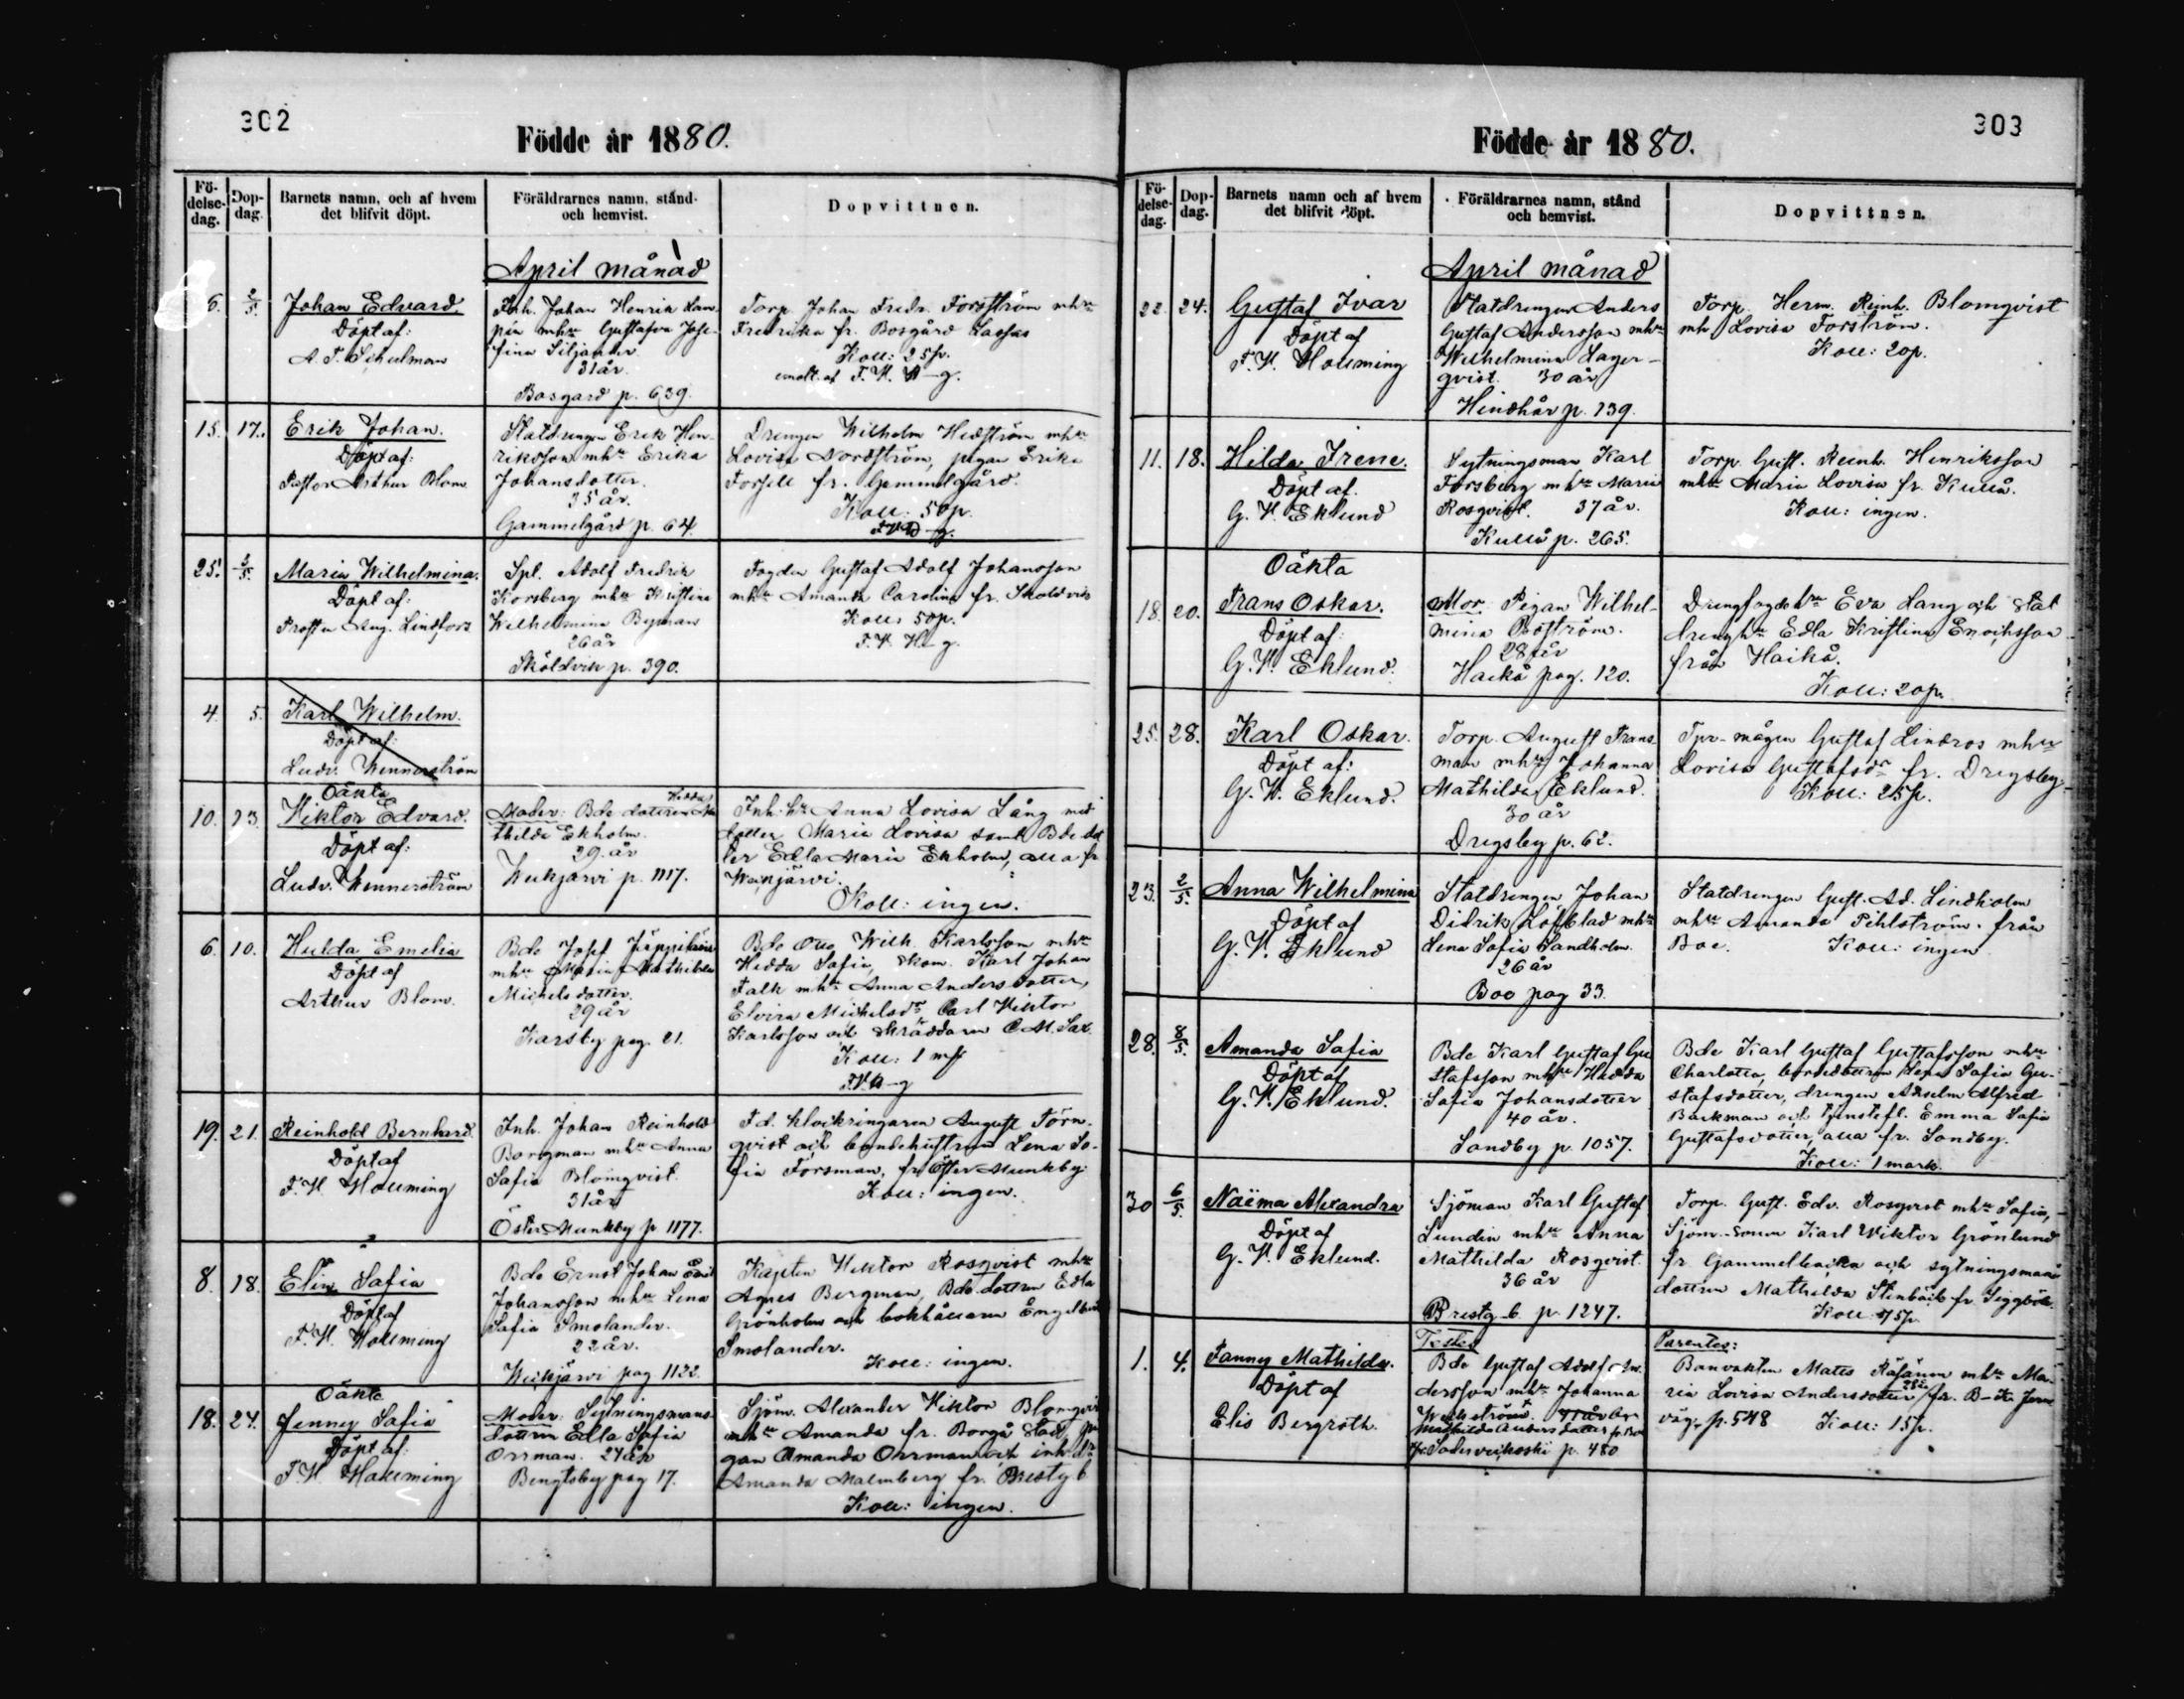 302
Födde år 1880.
Födelsedag.
Dopdag.
Barnets namn, och af hvem det blifvit döpt.
Föräldrarnes namn, stånd och hemvist.
Dopvittnen.
April månad
6. 2/5. Johan Edvard.
Döpt af:
A. T. Schulman
Inh. Johan Henrik
mhu Gustafva Jose-
fina Siljander
31 år.
Bosgård p. 639.
Torp. Johan Fredr. Forsström mhu
Fredrika fr. Bosgård
Koll: 25 p.
af F. W. H-g.
15. 17. Erik Johan.
Döpt af:
Pastor Arthur Blom
Statdrengen Erik Hen-
riksson mhu Erika
Johansdotter.
35 år.
Gammelgård p. 64.
Drengen Wilhelm Hedström mhu
Lovisa Nordström, pigan Erika
Forsell fr. Gammelgård.
Koll: 50 p.
25. 2/5. Maria Wilhelmina.
Döpt af:
Prosten Aug. Lindfors
Spl. Adolf Fredrik
Korsberg mhu Kristina
Wilhelmina Byman
26 år
Sköldvik p. 390.
Fogden Gustaf Adolf Johansson
mhu Amanda Carolina fr. Sköldvik
Koll: 50 p.
F. W. H-g.
4. 5. Karl Wilhelm.
Döpt af:
Ludv. Wennerström
Oäkta
10. 23. Viktor Edvard.
Döpt af:
Ludv. Wennerström
Moder: Bde dottren Hedda Ma-
thilda Ekholm.
29 år
Weckjärvi p. 1117.
Inh. h. Anna Lovisa Lång med
dotter Maria Lovisa samt Bde dot
ter Edla Maria Ekholm, alla fr.
Weckjärvi.
Koll: ingen.
6. 10. Hulda Emelia
Döpt af
Arthur Blom.
Bde Josef
mhu Maria Mathilda
Michelsdotter.
29 år
Karsby pag. 21.
Bde Otto Wilh. Karlsson mhu
Hedda Sofia, Karl Johan
Falk mhu Anna Andersdotter,
Elvira Michelsdr Carl Viktor
Karlsson och skräddaren C. M. Sax.
Koll: 1 mk
19. 21. Reinhold Bernhard.
Döpt af
F. W. Hollming
Inh. Johan Reinhold
Borgman mhu Anna
Sofia Blomqvist.
31 år
Öster Munkby p. 1177.
F.d. klockringaren August Törn-
qvist och bondehustrun Lena So-
fia Forsman, fr. Öster Munkby.
Koll: ingen.
8. 18. Elin Sofia
Döpt af
F. W. Hollming
Bde Ernst Johan Emil
Johansson mhu Lena
Sofia Smolander.
22 år.
Weckjärvi pag 1122.
Kapten Viktor Rosqvist mhu
Agnes Bergman, Bde dottren Edla
Grönholm och bokhållaren Engelbert
Smolander.
Koll: ingen.
Oäkta
18. 24. Jenney Sofia
Döpt af:
F. W. Hollming
Moder: Sytningsmans
dottren Edla Sofia
Orrman. 24 år
Bengtsby pag 17.
Sjöm. Alexander Viktor Blomqvist
mhu Amanda fr. Borgå stad, pi
gan Amanda Orrman och inh. dr
Amanda Malmberg fr. Prestg. b.
Koll: ingen.
303
Födde år 1880.
Födelsedag.
Dopdag.
Barnets namn och af hvem det blifvit döpt.
Föräldrarnes namn, stånd och hemvist.
Dopvittnen.
April månad
22. 24. Gustaf Ivar
Döpt af
F. W. Hollming
Statdrengen Anders
Gustaf Andersson mhu
Wilhelmina Lager-
qvist. 30 år
Hindhår p. 139.
Torp. Herm. Reinh. Blomqvist
mh Lovisa Forström.
Koll: 20 p.
11. 18. Hilda Irene.
Döpt af.
G. W. Eklund
Sytningsman Karl
Forsberg mhu Maria
Rosqvist. 37 år.
Kullå p. 265.
Torp. Gust. Reinh. Henriksson
mhu Maria Lovisa fr. Kullå.
Koll: ingen.
Oäkta
18. 20. Frans Oskar.
Döpt af:
G. W. Eklund.
Mor: Pigan Wilhel-
mina Boström.
28 år
Haikå pag. 120.
Drengfogdehn Eva Lang och stat
drenghn Edla Kristina Enriksson
från Haikå.
Koll: 20 p.
25. 28. Karl Oskar.
Döpt af:
G. W. Eklund.
Torp. August Frans-
man mhu Johanna
Mathilda Eklund.
30 år
Dregsby p. 62.
Tpr-mågen Gustaf Lindros mhu
Lovisa Gustafsdr fr. Dregsby
Koll: 25 p.
23. 2/5. Anna Wilhelmina
Döpt af
G. W. Eklund
Statdrengen Johan
Didrik Löfblad mhu
Lena Sofia Sandholm.
26 år
Boo pag 33.
Statdrengen Gust. Ad. Lindholm
mhu Amanda Pihlström. från
Boe. Koll: ingen
28. 8/5. Amanda Sofia
Döpt af
G. W. Eklund.
Bde Karl Gustaf Gu
stafsson mhu Hedda
Sofia Johansdotter
40 år.
Sondby p. 1057.
Bde Karl Gustaf Gustafsson mhu
Charlotta, bondedottren Lena Sofia Gu-
stafsdotter, drengen Anselm Alfred
Backman och tjenstefl. Emma Sofia
Gustafsdotter, alla fr. Sondby.
Koll: 1 mark.
30 6/5. Naëma Alexandra
Döpt af
G. W. Eklund.
Sjöman Karl Gustaf
Lundin mhu Anna
Mathilda Rosqvist.
36 år
Prestg. b. p. 1247.
Torp. Gust. Edv. Rosqvist mhu Sofia,
Sjöm-sonen Karl Wiktor Grönlund
fr. Gammelbacka och sytningsmans
dottren Mathilda Stenbäck fr. Siggböle.
Koll: 75 p.
1. 4. Fanny Mathilda.
Döpt af
Elis Bergroth.
Testes
Bde Gustaf Adolf An-
dersson mhu Johanna
Weckström
Mathilda Andersdotter
p. 480
Parentes:
Banvakten Matts Räsänen mhu Ma-
ria Lovisa Andersdotter 28 år fr. B-K. Jern
väg. p. 548 Koll: 15 p.